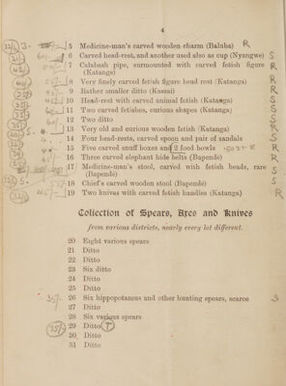 4
5 Medicine-man's carved wooden charm (Baluba) R
6 Carved head-rest, and another used also as cup (Nyangwe) S
7 Calabash pipe, surmounted with carved fetish figure R
(Katanga)
8 Very finely carved fetish figure head rest (Katanga) R
9 Rather smaller ditto (Kassai) R
10 Head-rest with carved animal fetish (Katanga) S
11 Two carved fetishes, curious shapes (Katanga) R
12 Two ditto S
13 Very old and curious wooden fetish (Katanga) R
14 Four head-rests, carved spoon and pair of sandals S
15 Five carved snuff boxes and 2 food bowls R
16 Three carved elephant hide belts (Bapendé) R
17 Medicine-man's stool, carved with fetish beads, rare S
(Bapendé)
18 Chief's carved wooden stool (Bapendé) S
19 Two knives with carved fetish handles (Katanga) R
Collection of Spears, Axes and Knives
from various districts, nearly every lot different.
20 Eight various spears
21 Ditto
22 Ditto
23 Six ditto
24 Ditto
25 Ditto
26 Six hippopotamus and other hunting spears, scarce S
27 Ditto
28 Six various spears
29 Ditto
30 Ditto
31 Ditto